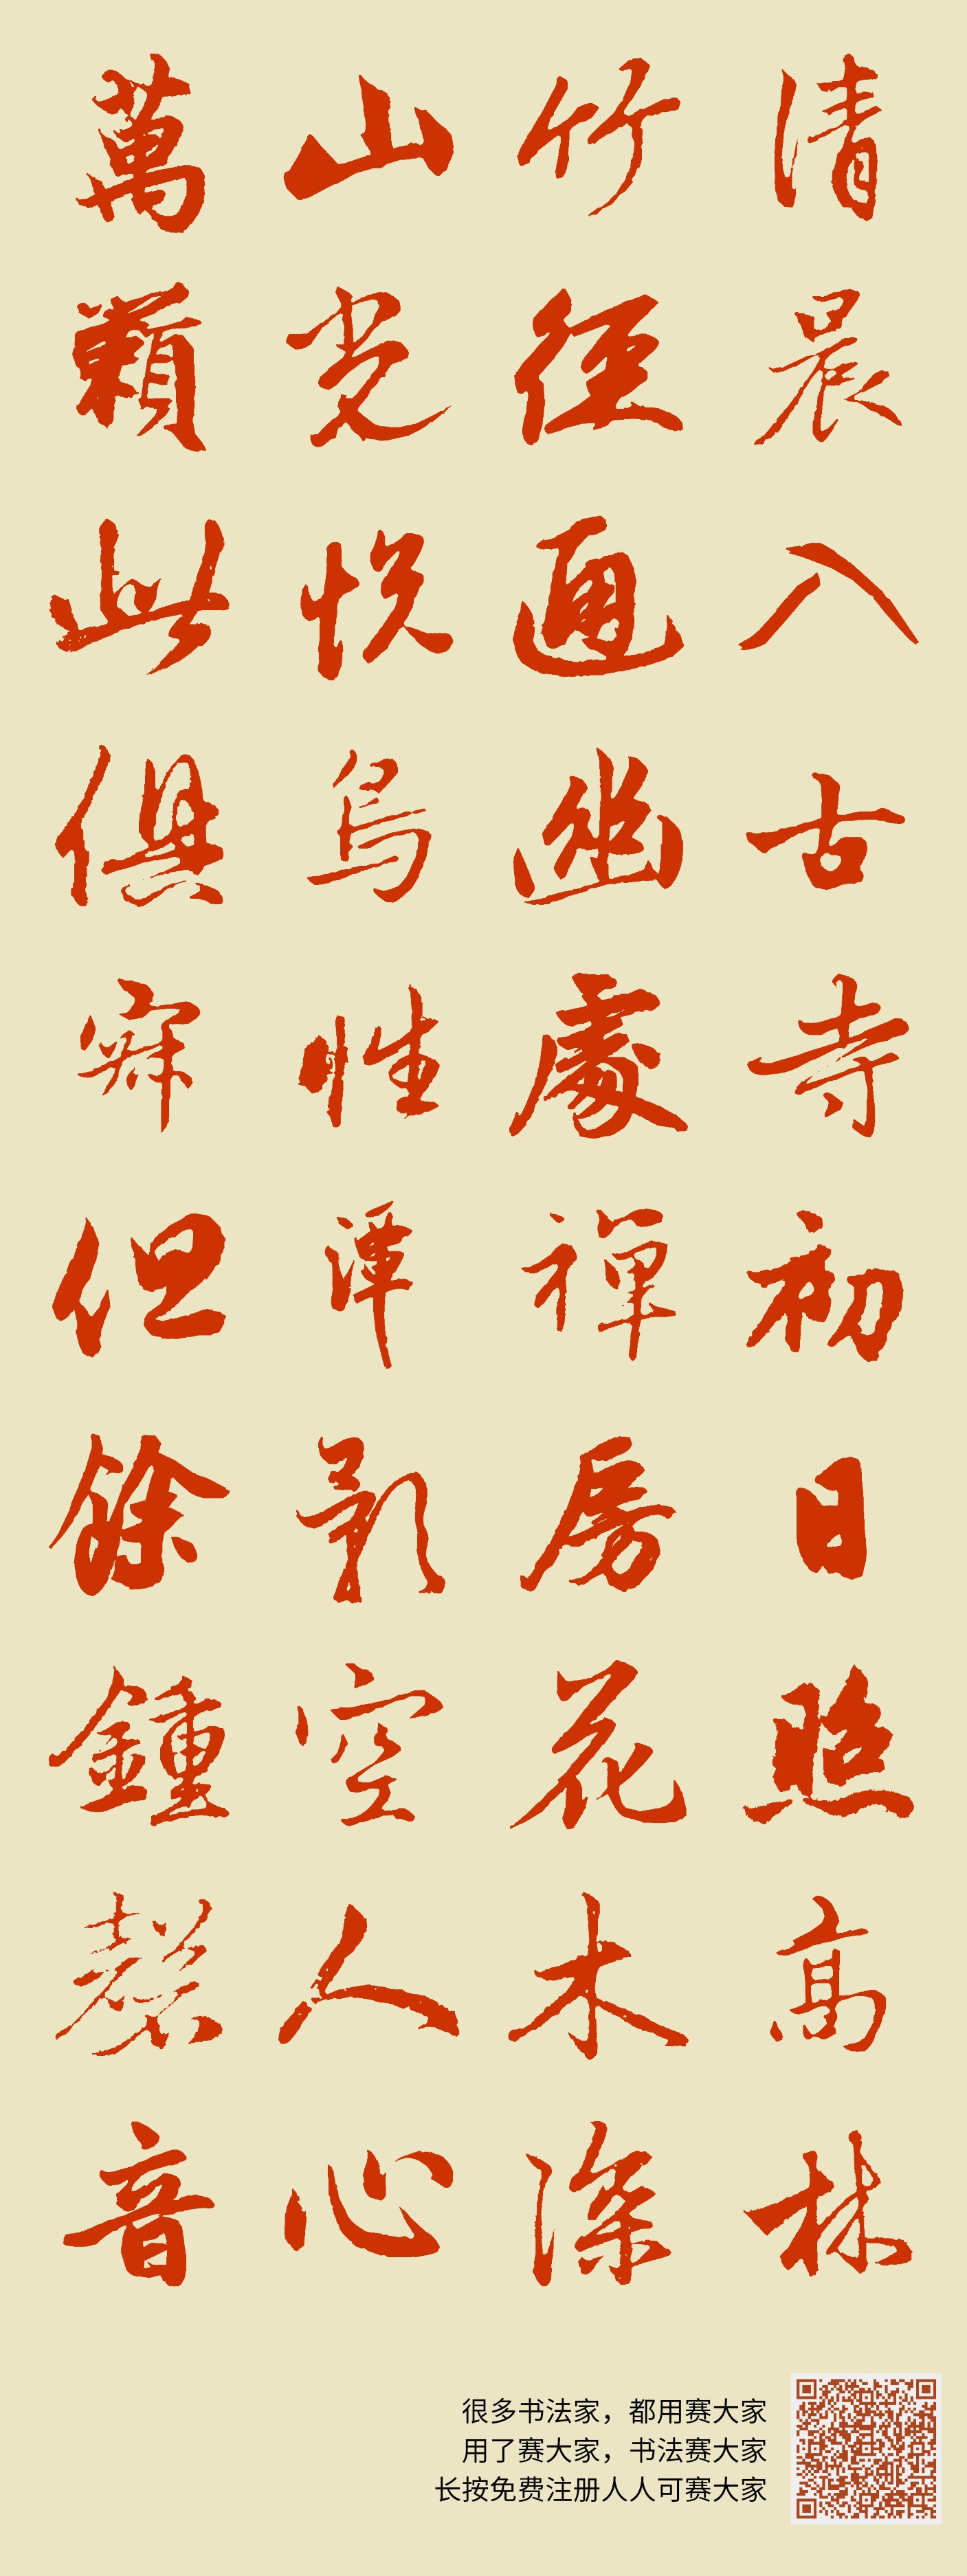 清晨入古寺初日照高林
竹徑通幽處禪房花木深
山光悅鳥性潭影空人心
萬籟此俱寂但餘鍾磬音
很多书法家，都用赛大家
用了赛大家，书法赛大家
长按免费注册人人可赛大家